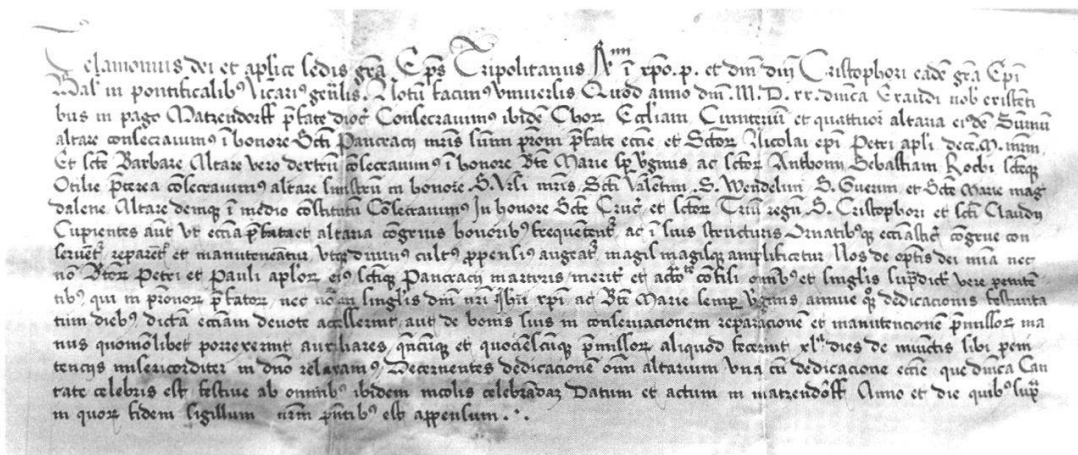 Telamonius dei et aplice sedis gr̄a Ep̄s Tripolitanus R^mi ī xp̄o. p. et dn̄i dn̄i Cristophori eadē gr̄a Epi
Basl̄ in pontificalibꝰ Vicariꝰ gn̄lis. Notū facimꝰ vniuersis Quod anno dn̄i M. D. xx. dn̄ica Exaudi nob̄ existenti
bus in pago Matzendorff p̄fate dioc̄ Consecrauimꝰ ibidē Chor Eccl̄iam Cimiteriū et quattuor altaria eiꝰdē Sūmū
altare consecrauimꝰ ī honore Sct̄i Pancracij mr̄is sūmi pr̄oni p̄fate eccīe et Sctōr Nicolai epī Petri apl̄i decē. M. mr̄m
Et sctē Barbare Altare vero dextrū cōsecrauimꝰ ī honore Btē Marie sp̄ v̄ginis ac sctōr Anthonij Sebastiani Rochi sctēqꝫ
Otilie p̄terea cōsecrauimꝰ altare sinistrū in honore S. Vrsi mr̄is Sct̄i Valentini. S. Wendelini S. Guerini et Sctē Marie mag
dalene Altare deinqꝫ ī medio cōstitutū Cōsecrauimꝰ In honore Sctē Crucꝭ et sctōr Triū regū S. Cristophori et sct̄i Claudij
Cupientes aūt vt eccīa p̄fata et altaria cōgruis honoribꝰ frequetentꝰ ac ī suis structuris Ornatibꝰqꝫ eccīasticꝭ cōgrue con
seruentꝰ reparentꝰ et manuteneātur vtqꝫ diuinus cultꝰ p̄pensiꝰ augeatꝰ magis magisqꝫ amplificetur Nos de om̄ptis dei mīa nec
nō Btōr Petri et Pauli aplōr eiꝰ sctīqꝫ Pancracij martiris meritꝭ et auctō^te confisi om̄ibꝰ et singlis sup̄dictꝭ vere penitē
tibꝰ qui in p̄ronor p̄fatōr nec nō in singlis dn̄i nr̄i Ihū xp̄i ac Btē Marie semp̄ v̄ginis, annue qꝫ dedicacionis festiuita
tum diebꝰ dictā eccīam deuote accesserint, aut de bonis suis in conseruacionem reparacionē et manutencionē p̄missōr ma
nus quomōlibet porrexerint auxiliares qn̄cūqꝫ et quociēscūqꝫ p̄missōr aliquod fecerint xl^ta dies de iniūctis sibi peni
tencijs misericorditer in dn̄o relaxamꝰ, Decernentes dedicacionē om̄i altarium vna cū dedicacione eccīe que dn̄ica Can
tate celebris est festiue ab om̄ibꝰ ibidem incolis celebrādaꝫ Datum et actum in matzendorff Anno et die quibꝰ sup̄
in quor̄ fidem sigillum nr̄m p̄ntibꝰ est appensum . ˙ .